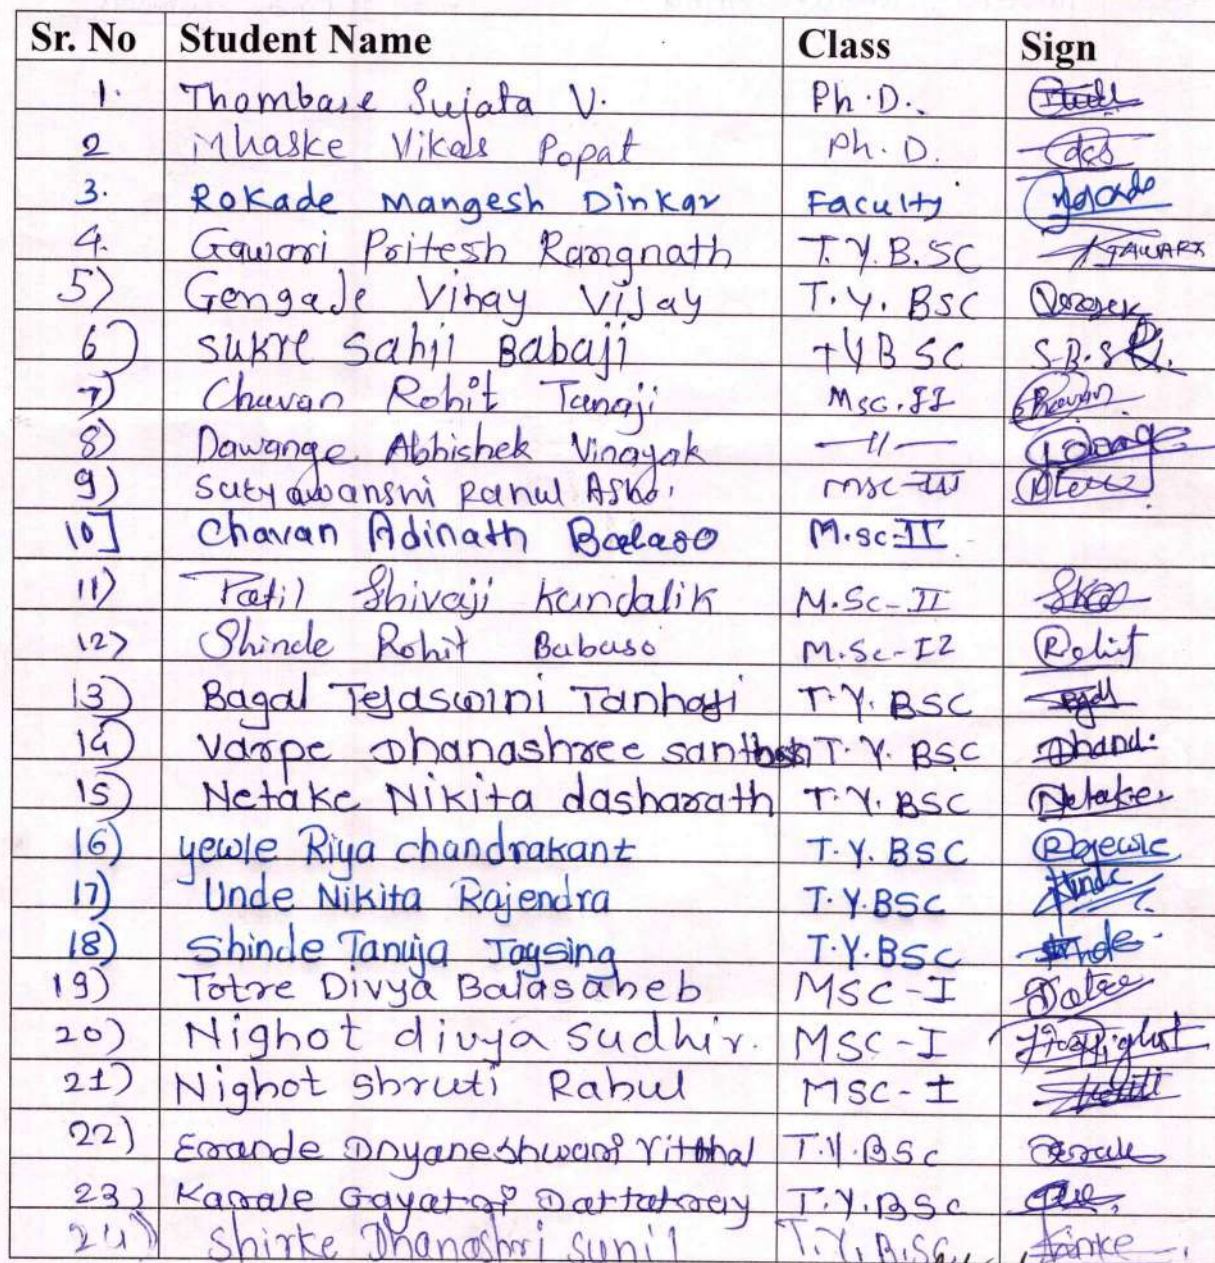 Sr. No Student Name Class Sign
1. Thombare Sujata V. Ph.D.
2 Mhaske Vikas Popat Ph.D.
3. Rokade Mangesh Dinkar Faculty
4. Gawari Pritesh Rangnath T.Y.B.SC GAWARI
5) Gengaje Vinay Vijay T.Y. BSC
6) Sukre Sahil Babaji T Y B SC S.B.S
7) Chavan Rohit Tanaji Msc.II Chavan
8) Dawange Abhishek Vinayak —11—
9) Suryawanshi Rahul Msc-III
10] Chavan Adinath Balaso M.sc-II
11) Patil Shivaji Kundalik M.Sc-II
12) Shinde Rohit Babaso M.Sc-I2 Rohit
13) Bagal Tejaswini Tanhaji T.Y. BSC
14) Varpe Dhanashree santhosh T.Y. BSC Dhana
15) Netake Nikita dasharath T.Y. BSC Netake
16) yewle Riya chandrakant T.Y. BSC Ryewle
17) Unde Nikita Rajendra T.Y.BSC Unde
18) Shinde Tanuja Jaysing T.Y.BSC
19) Totre Divya Balasaheb MSC-I
20) Nighot divya Sudhir. MSC-I Nighot
21) Nighot Shruti Rahul MSC-I
22) Erande Dnyaneshwari Vitthal T.Y.BSc
23) Karale Gayatri Dattatray T.Y.BSC
24) Shirke Dhanashri Sunil T.Y.B.Sc